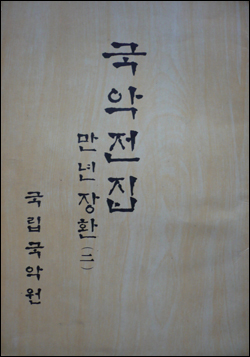 국악전집
만년장환(二)
국립국악원